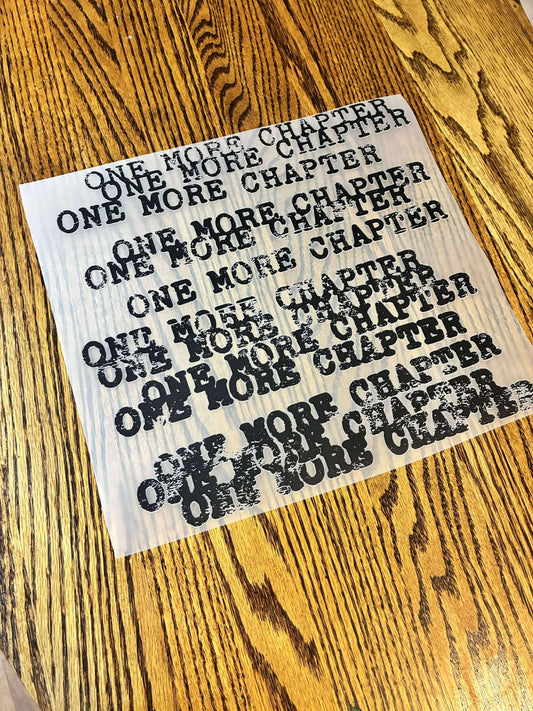 ONE MORE CHAPTER
ONE MORE CHAPTER
ONE MORE CHAPTER
ONE MORE CHAPTER
ONE MORE CHAPTER
ONE MORE CHAPTER
ONE MORE CHAPTER
ONE MORE CHAPTER
ONE MORE CHAPTER
ONE MORE CHAPTER
ONE MORE CHAPTER
ONE MORE CHAPTER
ONE MORE CHAPTER